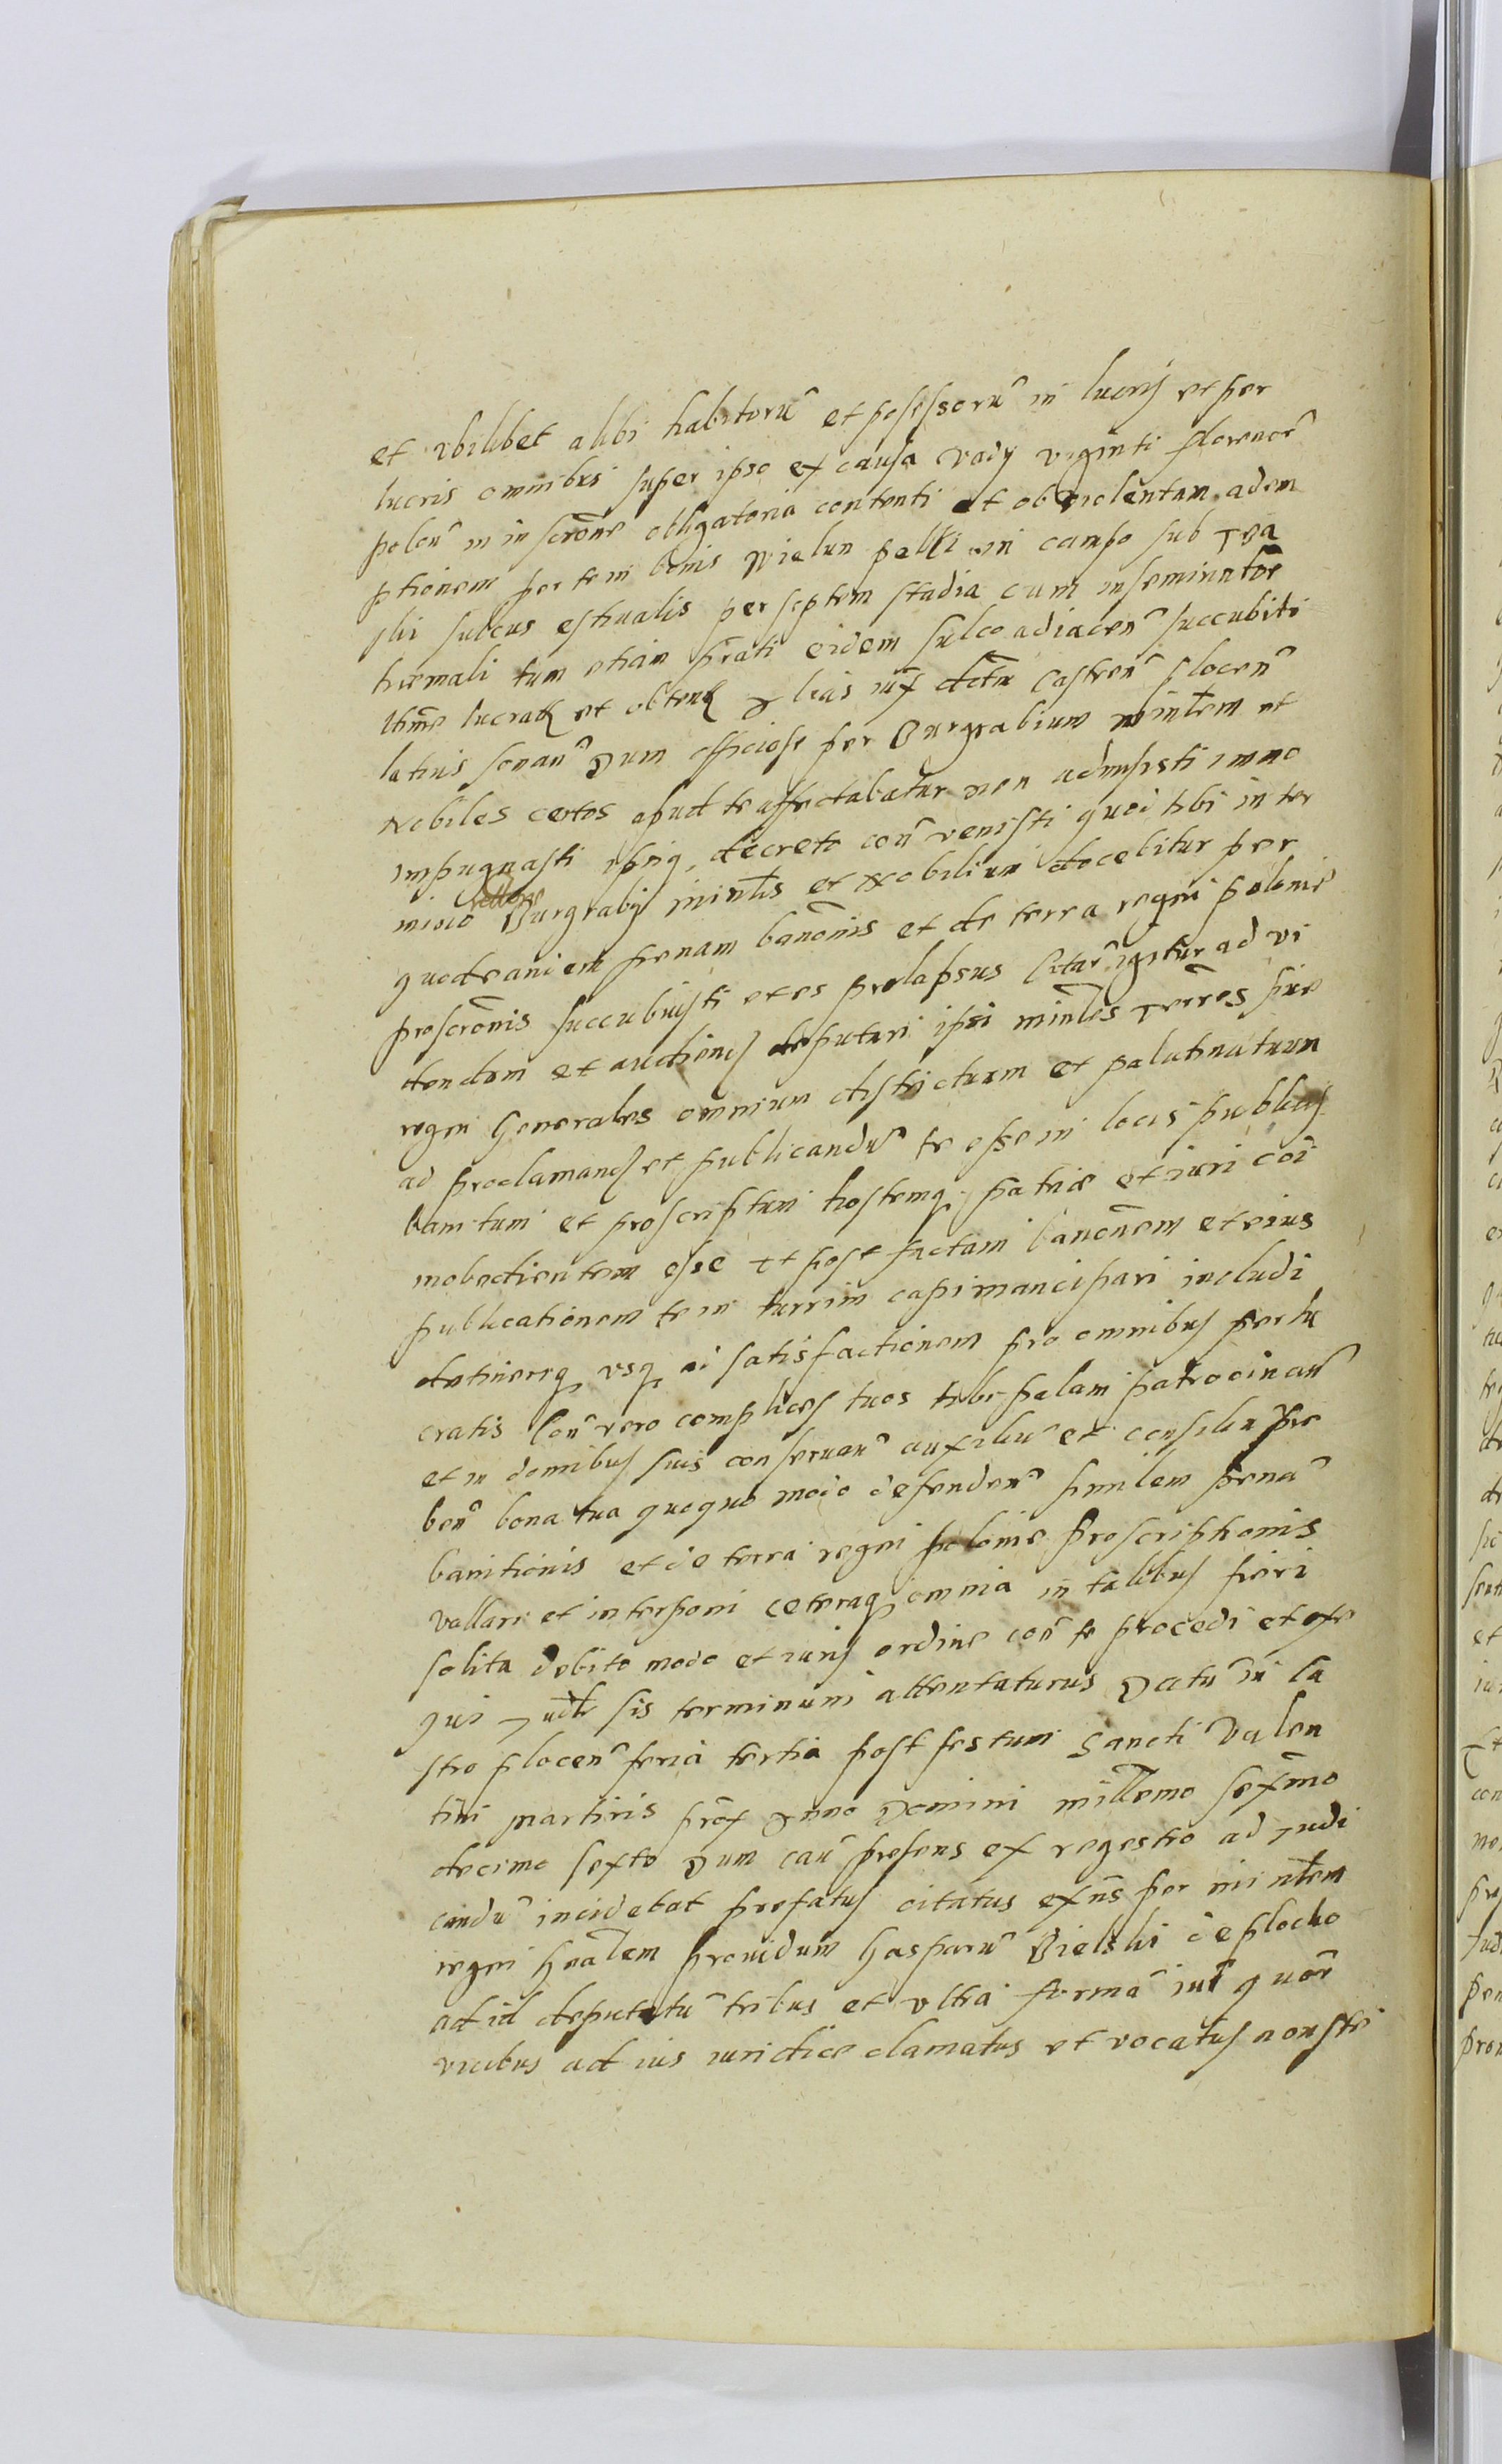 et vbilibet alibi habitorũ et possessorũ in lucris et per
lucris omnibus super ipso ex causa vady viginti florenorũ
polonũ in inscrõne obligatoria contenti et ob violentam adem
ptionem per te in bonis Wielun pelki in campo sub
sulcus estiualis per septem stadia cum inseminatõe
hiemali tum etiam prati eidem sulco adiacen̄ succubiti
lucratq et obtentq iux dctũ Castren̄ plocen̄
latius sonan̄ Dum officiose per Burgrabium minlem et
Nobiles certos apud te affectabatur non admisisti immo
impugnasti ipsiq decreto con̄ venisti quod tibi in ter
mino Burgraby minlis et Nobilium docebitur per
quod eandem penam banõnis et de terra regni polonie
proscrõnis succubuisti et es prolapsus Citar̃ igitur ad vi
dendum et audiend deputari ipsi minles Terres siue
regni Generales omnium districtuum et palatinatuum
ad proclamand et publicandũ te esse in locis publicis
banitum et proscriptum hostemq patriæ et iuri cõi
inobedientem esse Et post factam banõnem et eius
publicationem te in turrim capi mancipari includi
detineriq vsq ad satisfactionem pro omnibus perlu
cratis Con̄ vero complices tuos tibi palam patrocinan̄
et in domibus suis conseruan̄ auxiliũ et consiliũ pre
ben̄ bona tua quoquo modo defenden̄ similem penã
banitionis et de terra regni polonie proscriptionis
vallari et interponi ceteraq omnia in talibus fieri
solita debito modo et iuris ordine con̄ te procedi et exe
qui Judr sis terminum attentaturus Datũ in Ca
stro plocen̄ feria tertia post festum Sancti Valen
tini martiris prõx Anno Domini millemo sexmo
decimo sexto Dum cau presens ex regestro ad Judi
candũ incidebat prefatus citatus exñs per minlem
regni gnalem prouidum Gasparũ Bielski de plocko
ad id deputatũ tribus et vltra formã iur quõr
vicibus ad ius iuridice clamatus et vocatus non ste